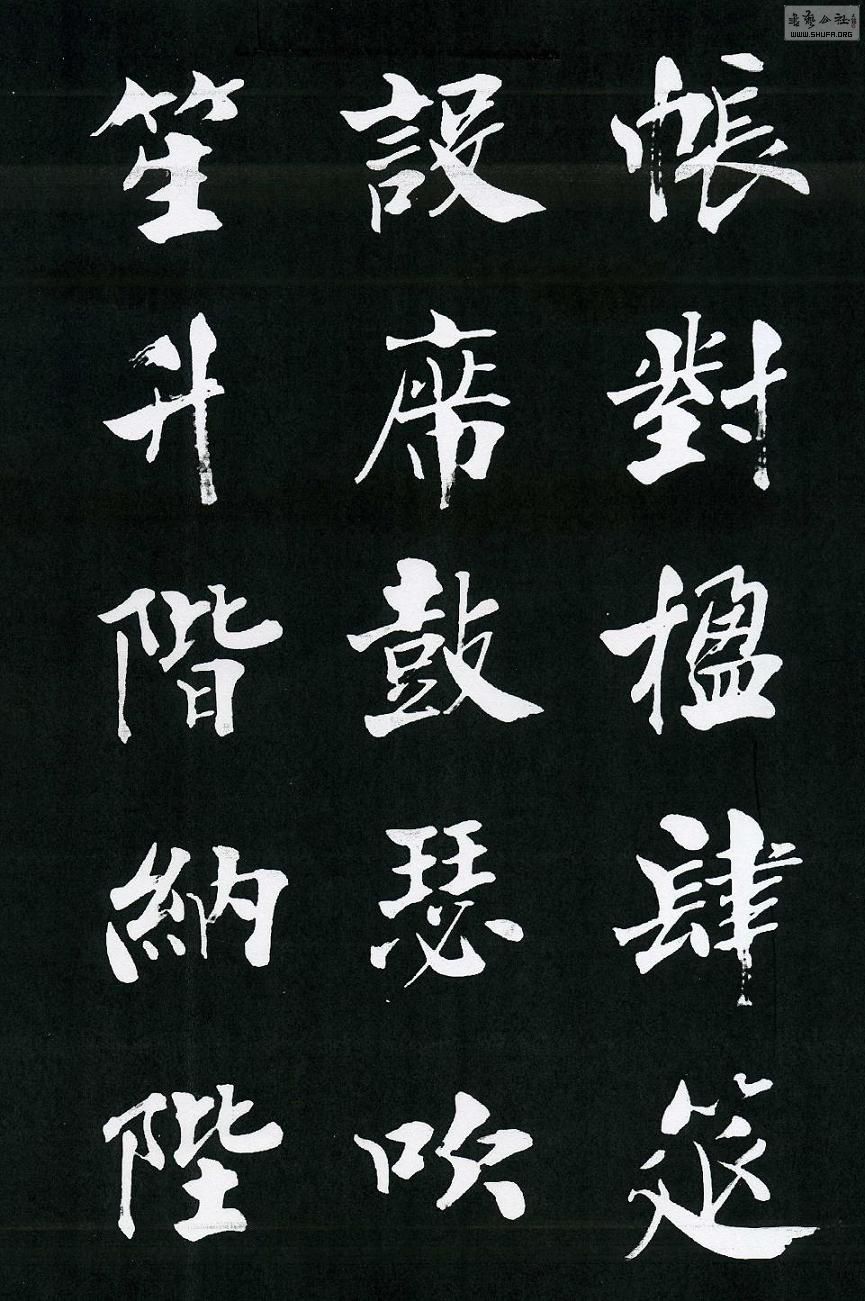 帳對楹肆筵
設席鼓瑟吹
笙升階納陛
書藝公社
WWW.SHUFA.ORG